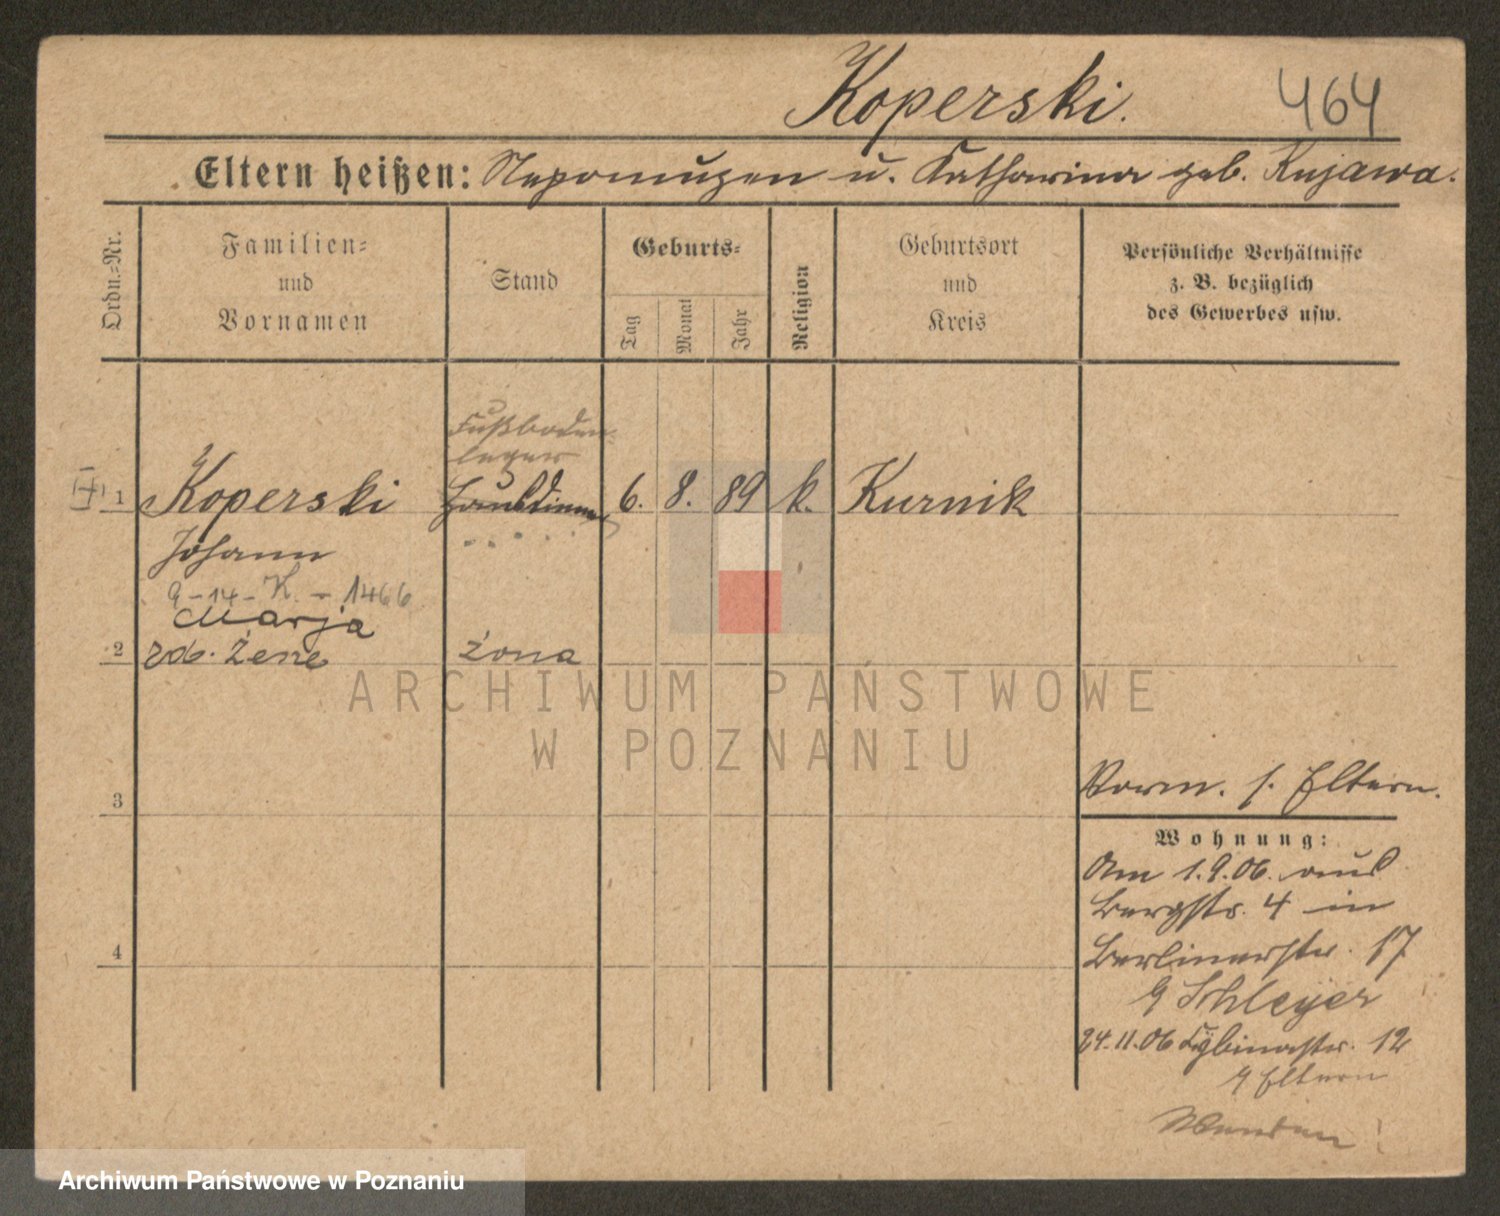 Koperski.
464
Eltern heißen: Nepomuzen u. Katharina geb. Kujawa.
Ordn.-Nr.
Familien-
und
Vornamen
Stand
Geburts-
Tag
Monat
Jahr
Religion
Geburtsort
und
Kreis
Persönliche Verhältnisse
z. B. bezüglich
des Gewerbes usw.
Fußboden
leger
1 Koperski Hausdiener 6. 8. 89 k. Kurnik
Johann
9-14-K.-1466
Marja
2 zd. Żene żona
3
4
Vorm. s. Eltern.
Wohnung:
Am 1.9.06. aus
Bergstr. 4 in
Berlinerstr. 17
b/ Schleyer
24.11.06 Cybinastr. 12
b/ Eltern
Wenden!
ARCHIWUM PAŃSTWOWE
W POZNANIU
Archiwum Państwowe w Poznaniu